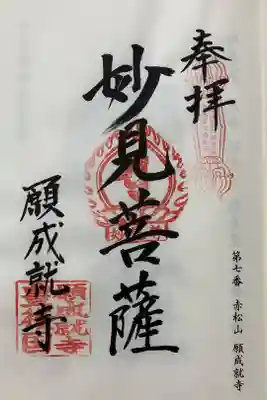 奉拝
妙見菩薩
願成就寺
第七番 赤松山 願成就寺